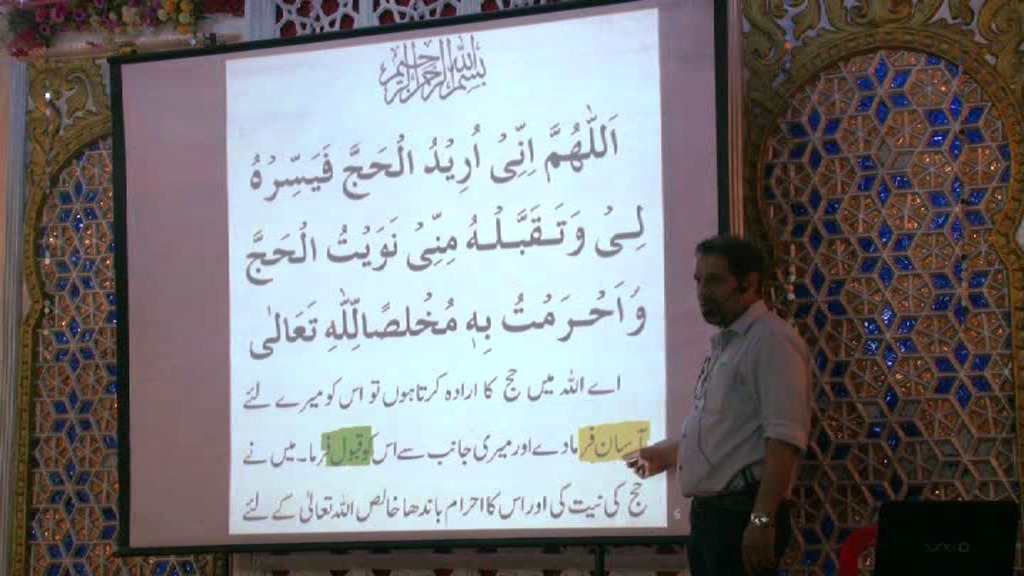 بسم الله الرحمن الرحيم
اَللّٰهُمَّ اِنِّیْ اُرِیْدُ الْحَجَّ فَیَسِّرْهُ
لِیْ وَتَقَبَّلْهُ مِنِّیْ نَوَیْتُ الْحَجَّ
وَاَحْرَمْتُ بِهٖ مُخْلِصًالِلّٰهِ تَعَالٰی
اے اللہ میں حج کا ارادہ کرتا ہوں تو اس کو میرے لئے
آسان فرمادے اور میری جانب سے اس کو قبول فرما۔ میں نے
حج کی نیت کی اور اس کا احرام باندھا خالص اللہ تعالیٰ کے لئے
6
VAIO